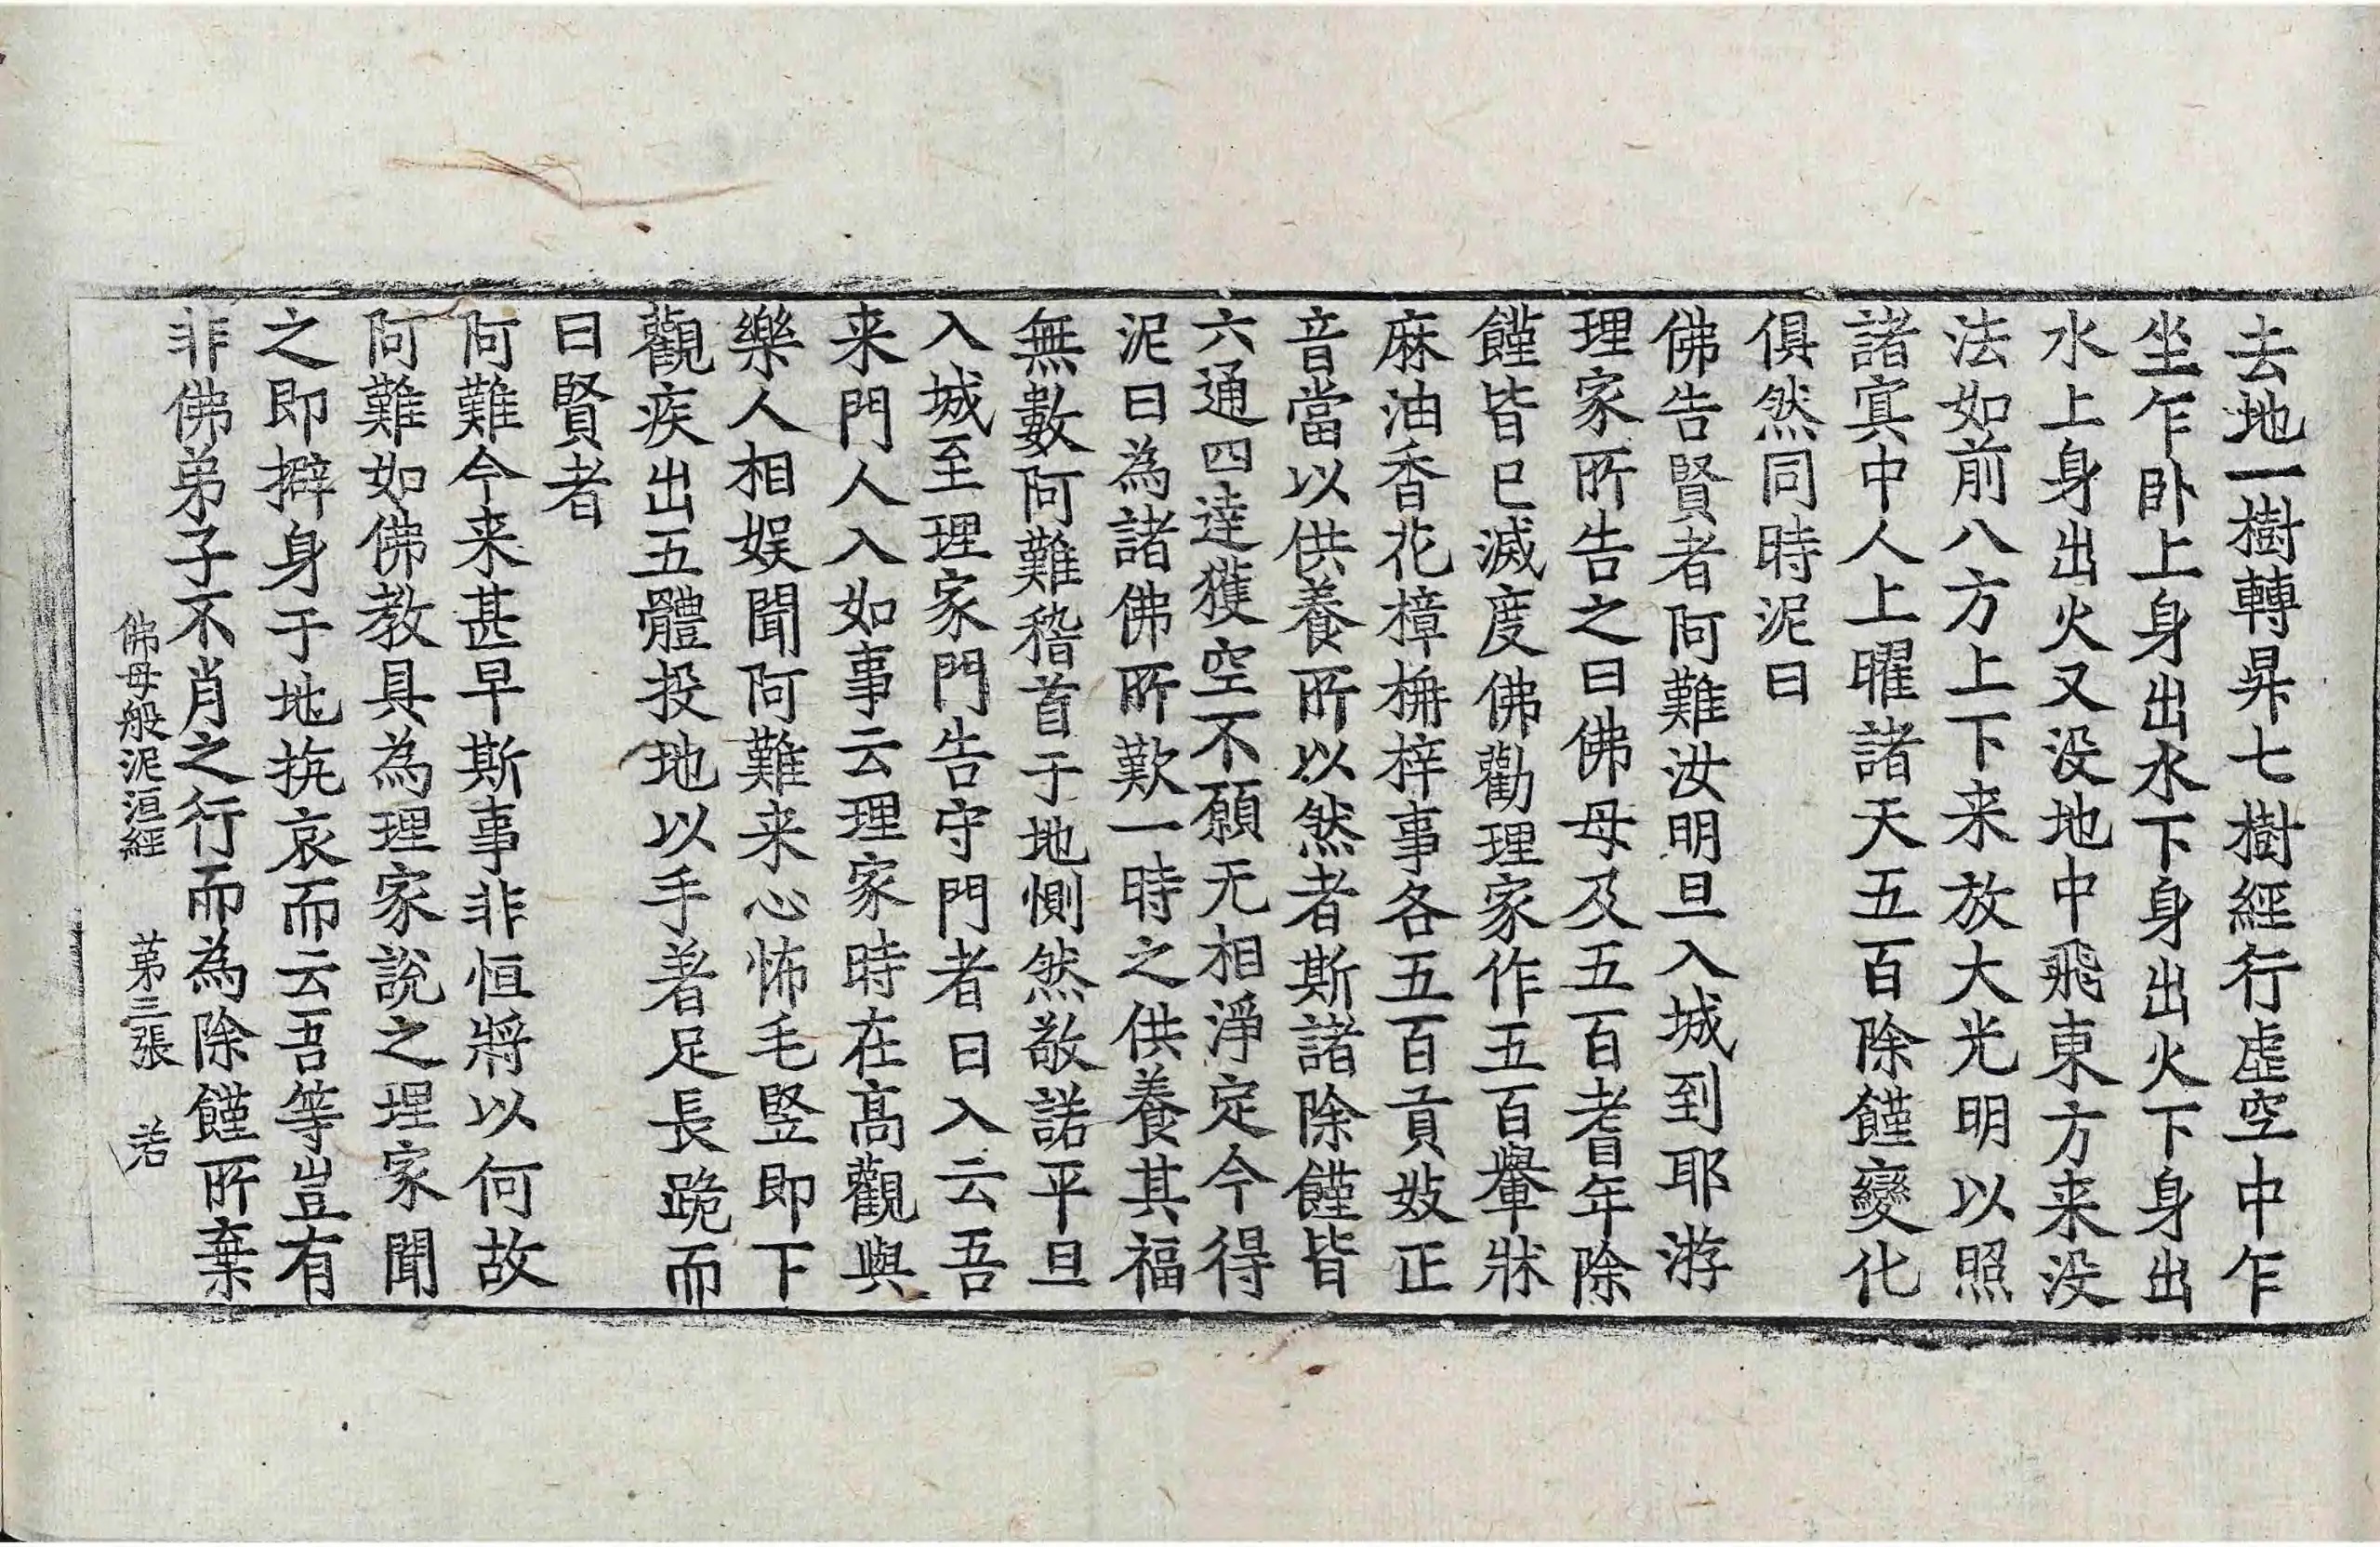 去地一樹轉昇七樹經行虛空中乍
坐乍卧上身出水下身出火下身出
水上身出火又没地中飛東方来没
法如前八方上下来放大光明以照
諸寘中人上曜諸天五百除饉變化
俱然同時泥曰
佛告賢者阿難汝明旦入城到耶游
理家所告之曰佛母及五百耆年除
饉皆已滅度佛勸理家作五百轝牀
麻油香花樟栴梓事各五百貢妓正
音當以供養所以然者斯諸除饉皆
六通四達獲空不願无相淨定今得
泥曰為諸佛所歎一時之供養其福
無數阿難稽首于地惻然敬諾平旦
入城至理家門告守門者曰入云吾
来門人入如事云理家時在高觀與
樂人相娱聞阿難来心怖毛竪即下
觀疾出五體投地以手著足長跪而
曰賢者
阿難今来甚早斯事非恒將以何故
阿難如佛教具為理家說之理家聞
之即擗身于地㧞哀而云吾等豈有
非佛弟子不肖之行而為除饉所棄
佛母般泥洹經 苐三張 若